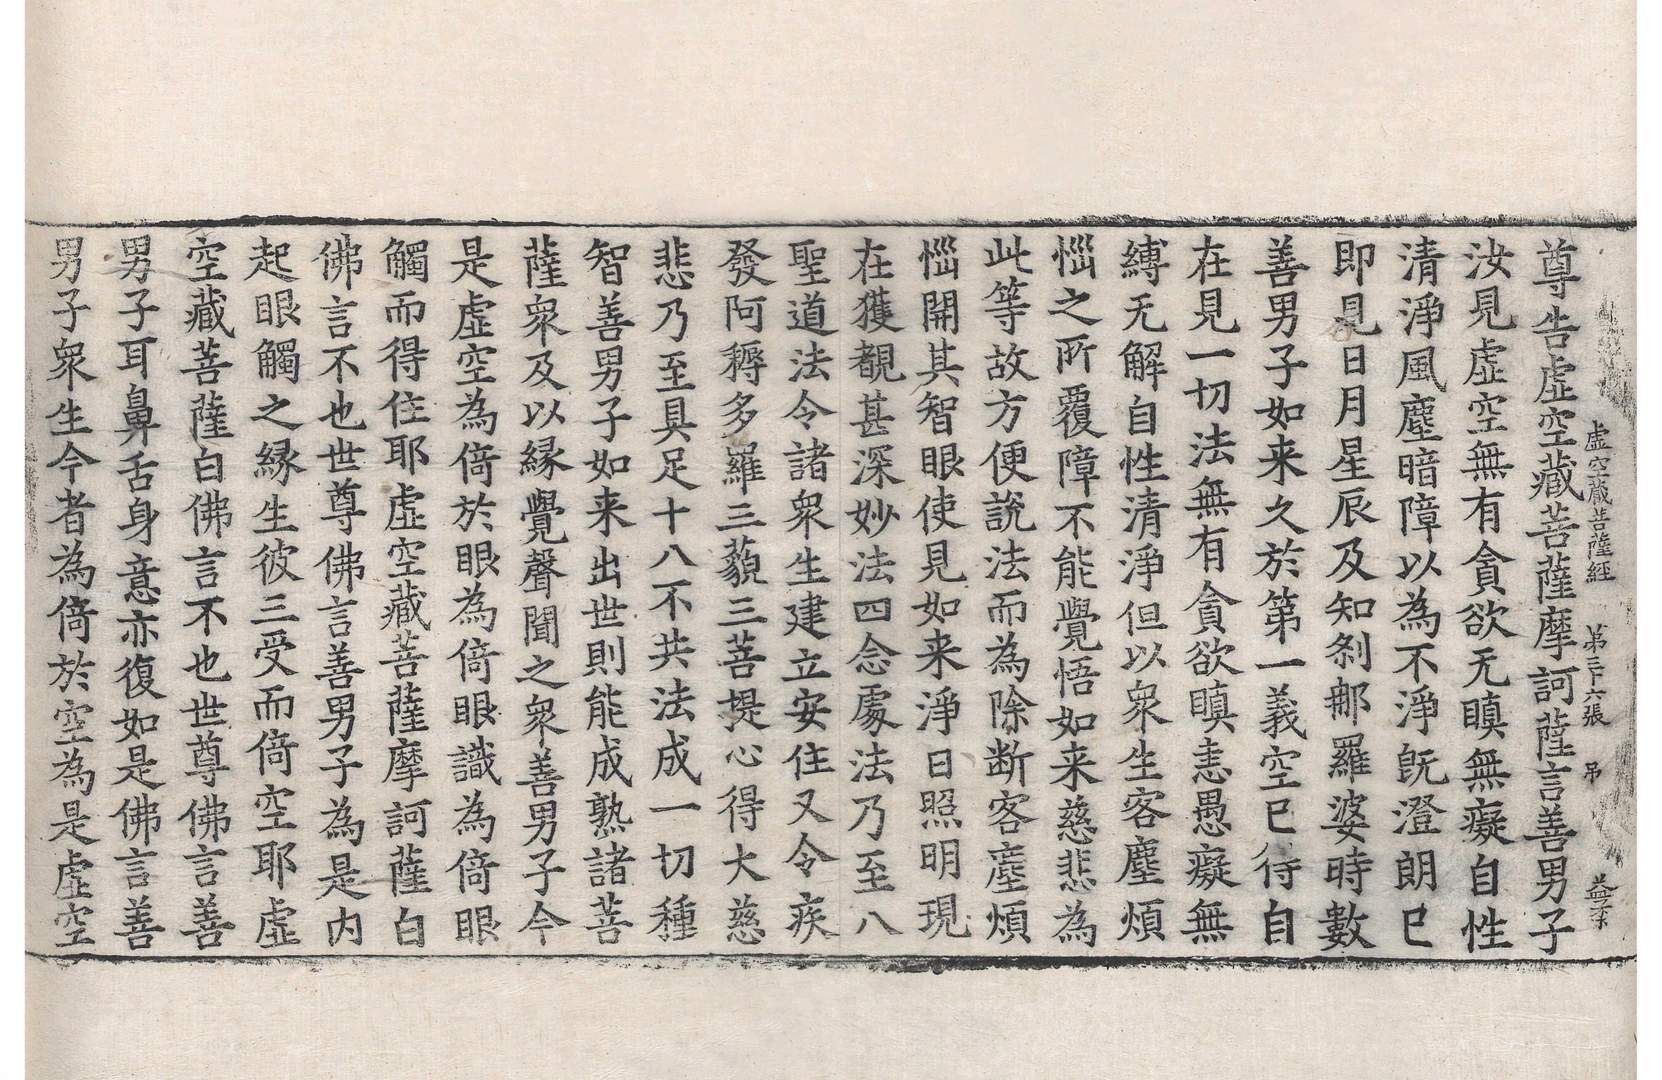 虛空藏菩薩經　第三十六張　弔　益宗
尊告虛空藏菩薩摩訶薩言善男子
汝見虛空無有貪欲无瞋無癡自性
清淨風塵暗障以為不淨旣澄朗已
即見日月星辰及知刹那羅婆時數
善男子如来久於第一義空已得自
在見一切法無有貪欲瞋恚愚癡無
縛无解自性清淨但以眾生客塵煩
惱之所覆障不能覺悟如来慈悲為
此等故方便說法而為除断客塵煩
惱開其智眼使見如来淨日照明現
在獲覩甚深妙法四念處法乃至八
聖道法令諸眾生建立安住又令疾
發阿耨多羅三藐三菩提心得大慈
悲乃至具足十八不共法成一切種
智善男子如来出世則能成熟諸菩
薩眾及以緣覺聲聞之眾善男子今
是虛空為倚於眼為倚眼識為倚眼
觸而得住耶虛空藏菩薩摩訶薩白
佛言不也世尊佛言善男子為是内
起眼觸之緣生彼三受而倚空耶虛
空藏菩薩白佛言不也世尊佛言善
男子耳鼻舌身意亦復如是佛言善
男子眾生今者為倚於空為是虛空